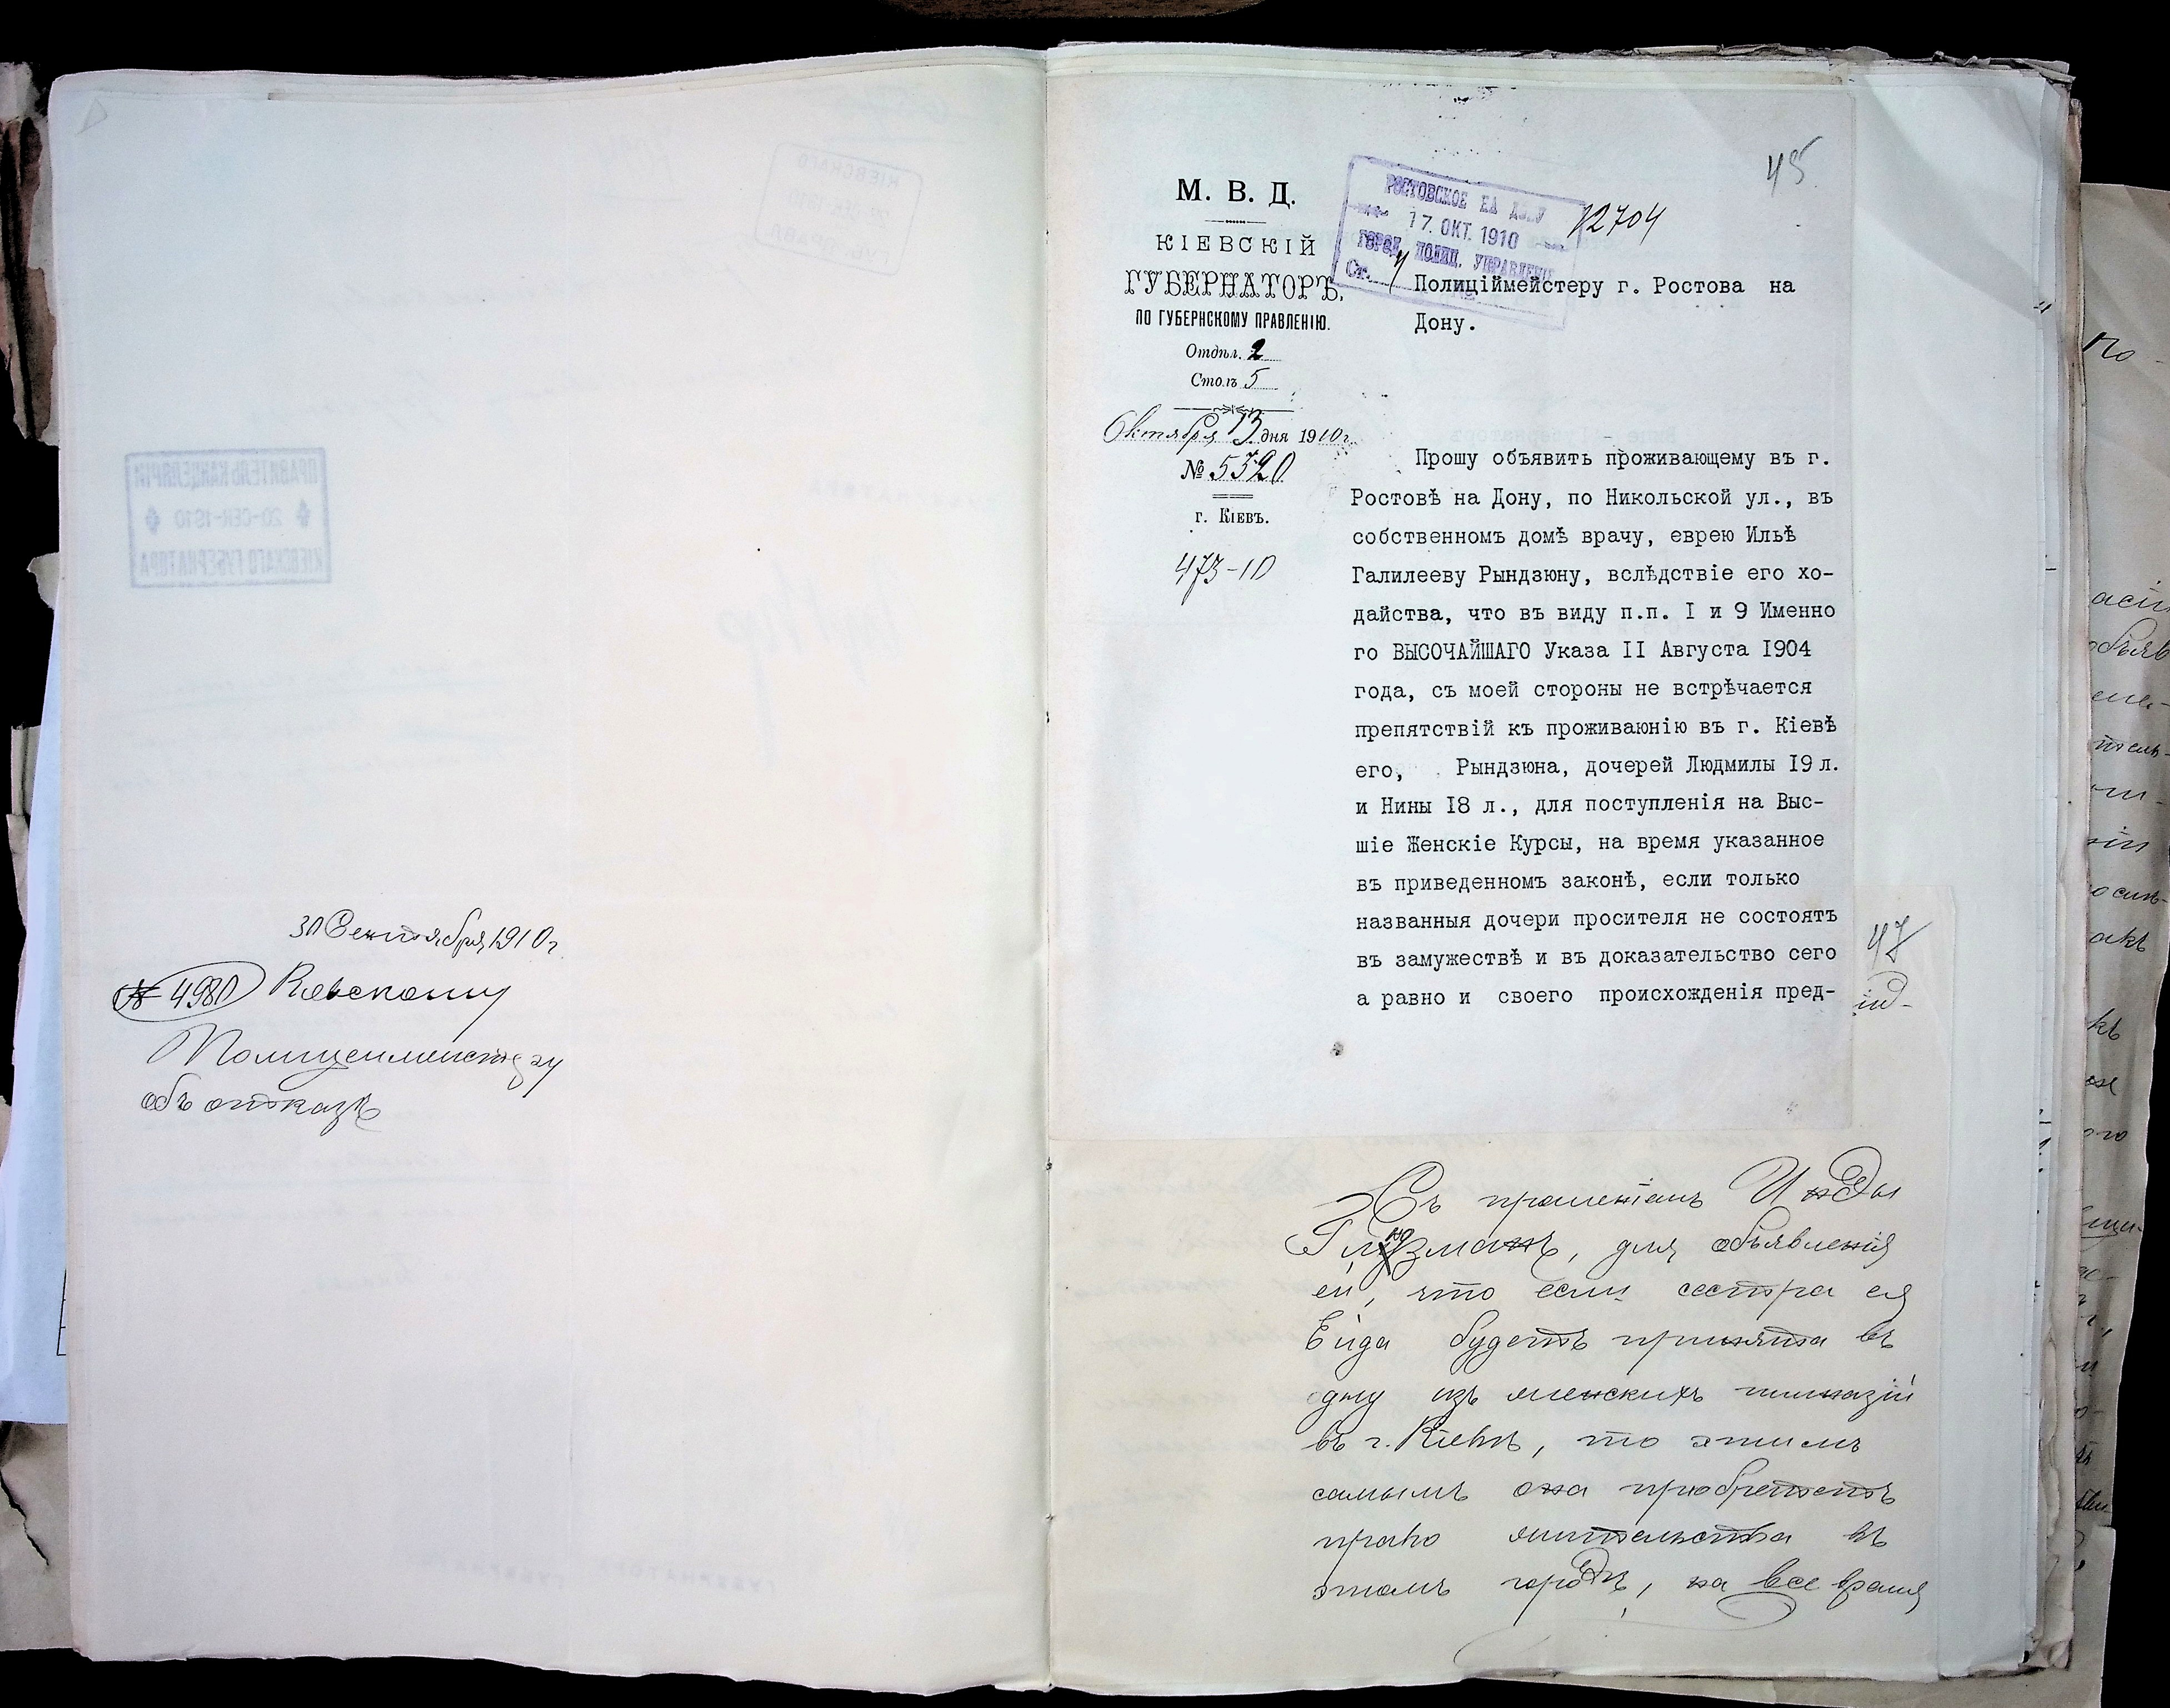 30 Сентября 1910 г.
№ 4980 Киевскому
Полицеймейстеру
объ отказѣ
45
М. В. Д.
КІЕВСКІЙ
ГУБЕРНАТОРЪ.
ПО ГУБЕРНСКОМУ ПРАВЛЕНІЮ.
Отдѣл. 2
Столъ 5
Октября 13 дня 1910 г.
№ 5320
г. КІЕВЪ.
473-10
РОСТОВСКОЕ НА ДОНУ
17. ОКТ. 1910
ГОРОД. ПОЛИЦ. УПРАВЛЕНІЕ
Ст. 4
12704
Полиціймейстеру г. Ростова на
Дону.
Прошу объявить проживающему въ г.
Ростовѣ на Дону, по Никольской ул., въ
собственномъ домѣ врачу, еврею Ильѣ
Галилееву Рындзюну, вслѣдствіе его хо-
дайства, что въ виду п.п. I и 9 Именно
го ВЫСОЧАЙШАГО Указа II Августа I904
года, съ моей стороны не встрѣчается
препятствій къ проживаюнію въ г. Кіевѣ
его, Рындзюна, дочерей Людмилы I9 л.
и Нины I8 л., для поступленія на Выс-
шіе Женскіе Курсы, на время указанное
въ приведенномъ законѣ, если только
названныя дочери просителя не состоятъ
въ замужествѣ и въ доказательство сего
а равно и своего происхожденія пред-
47
Съ прошеніемъ
Глузманъ, для объявленія
ей, что если сестра ея
Ейда будетъ принята въ
одну изъ женскихъ гимназій
въ г. Кіевѣ, то этимъ
самымъ она пріобрететъ
право жительства въ
этомъ городѣ, на все время